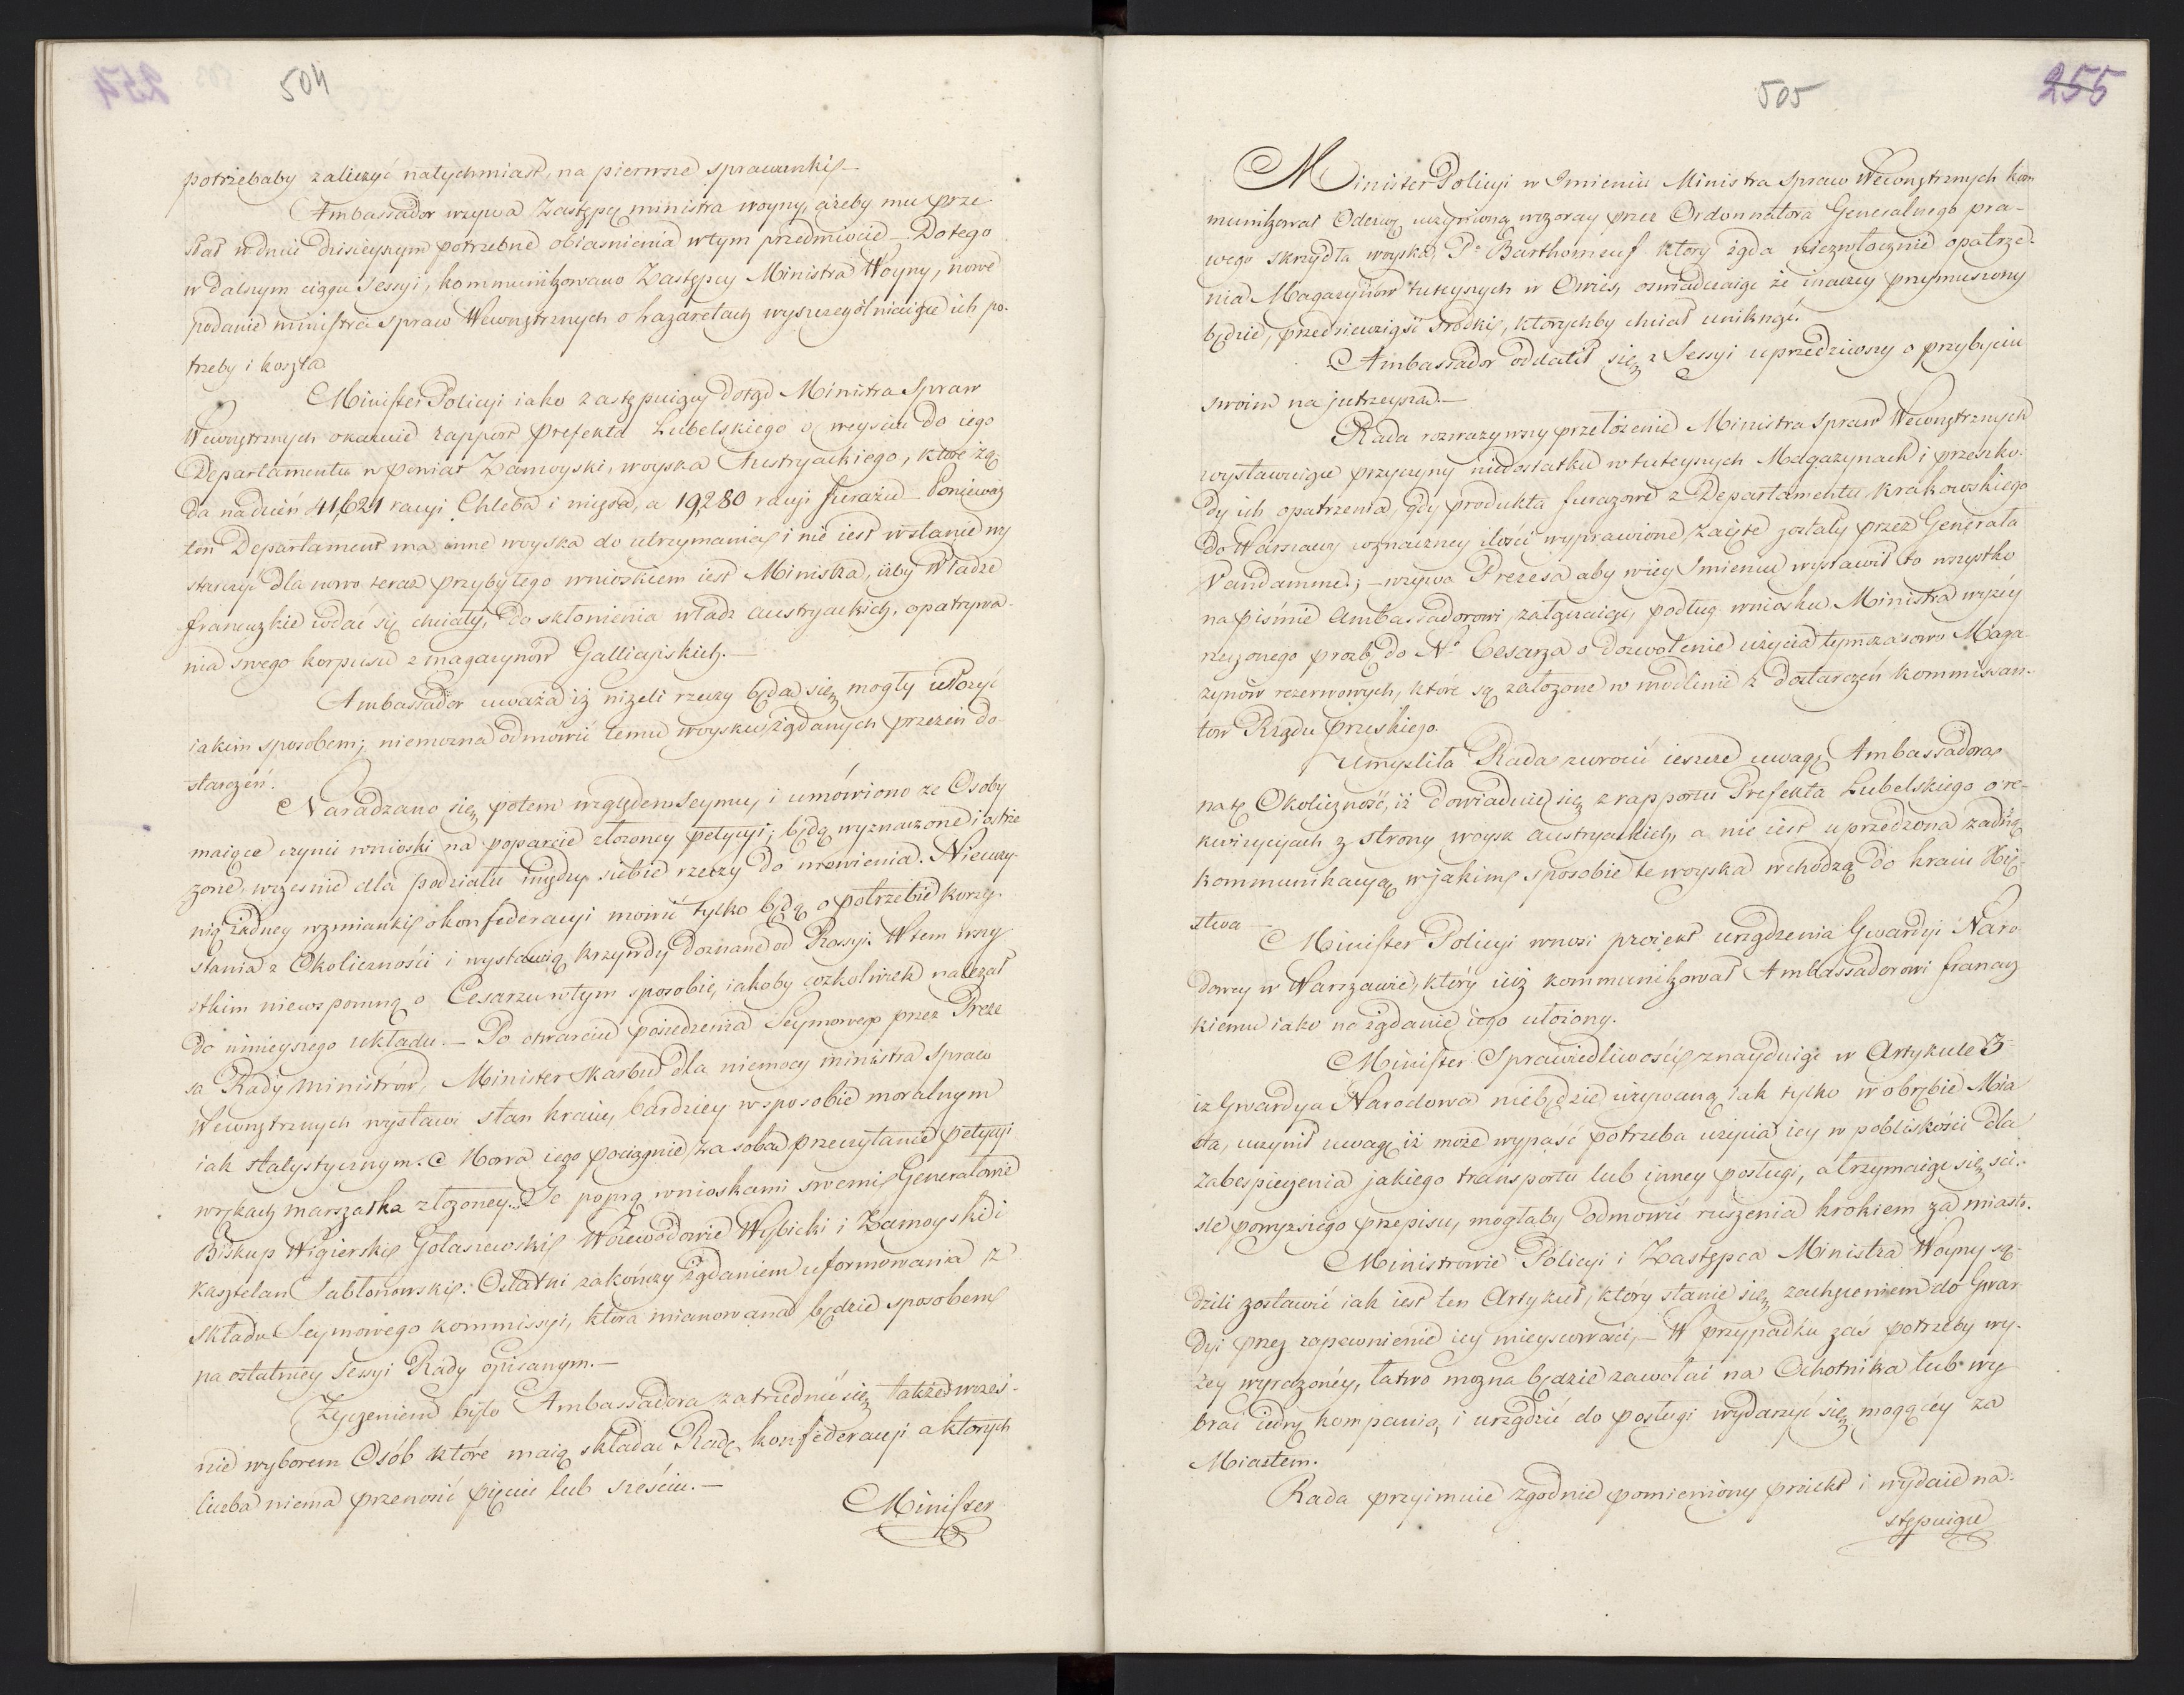 504
potrzebaby zaliczyć natychmiast, na pierwsze sprawunki —
Ambassador wzywa Zastępcę ministra woyny, ażeby mu prze
słał w dniu dzisieyszym potrzebne obiasnienia w tym przedmiocie — Do tego
w dalszym ciągu Sessyi, kommunikowano Zastępcy Ministra Woyny, nowe
podanie ministra spraw Wewnętrznych o lazaretach wyszczególniaiące ich po-
trzeby i koszta
Minister Policyi iako zastępuiący dotąd Ministra Spraw
Wewnętrznych okazuie rapport Prefekta Lubelskiego o weyściu do iego
Departamentu w powiat Zamoyski, woyska Austryackiego, które żą-
da na dzień 41,621 racyi Chleba i mięsa, a 19,280 racyi furażu — Ponieważ
ten Departament ma inne woyska do utrzymania i nie iest w stanie wy
starczyć dla nowo teraz przybyłego wnioskiem iest Ministra, iżby Władze
francuzkie wdać się chciały, do skłonienia władz austryackich, opatrywa-
nia swego korpusu z magazynów Gallicyiskich. —
Ambassador uważa iż niżeli rzeczy będą się mogły ułożyć
iakim sposobem; niemożna odmówić temu woysku, żądanych przezeń do-
starczeń.
Naradzano się potem względem Seymu, i umówiono ze Osoby
maiące czynić wnioski na poparcie złożoney petycyi; będą wyznaczone i ostrze
żone, wcześnie dla podziału między siebie rzeczy do mówienia. Nieuczy-
nią żadney wzmianki o konfederacyi mówić tylko będą o potrzebie korzy-
stania z Okoliczności i wystawią krzywdy doznane od Rossyi. W tem wszy
stkim niewspomną o Cesarzu w tym sposobie, iakoby cożkolwiek należał
do ninieyszego układu. — Po otwarciu posiedzenia Seymowego przez Preze
sa Rady Ministrów, Minister Skarbu dla niemocy ministra Spraw
Wewnętrznych wystawi stan kraiu, bardziey w sposobie moralnym
iak statystycznym. Mowa iego pociągnie za sobą przeczytanie petycyi
w rękach marszałka złożoney. Tę poprą wnioskami swemi Generałowie
Biskup Wigierski Gołaszewski Woiewodowie Wybicki i Zamoyski i
Kasztelan Jabłonowski: Ostatni zakończy żądaniem uformowania z
składu Seymowego kommissyi, która mianowana będzie sposobem
na ostatniey Sessyi Rady opisanym. —
Życzeniem było Ambassadora zatrudnić się także wcześ-
nie wyborem Osób które maią składać Radę konfederacyi a których
liczba niema przenosić pięciu lub sześciu. —
Minister
505
255
Minister Policyi w Imieniu Ministra Spraw Wewnętrznych kom
munikował Odezwę uczynioną wczoray przez Ordonnatora Generalnego pra-
wego skrzydła woyska, Pa Barthomeuf który żąda niezwłocznie opatrze-
nia Magazynów tuteyszych w Owies, oświadczaiąc że inaczey przymuszony
będzie, przedsięwziąść środki, którychby chciał uniknąć.
Ambassador oddalił się z Sessyi uprzedziwszy o przybyciu
swoim na jutrzeyszą. —
Rada rozważywszy przełożenie Ministra Spraw Wewnętrznych
wystawuiące przyczyny niedostatku w tuteyszych Magazynach i przeszko-
dy ich opatrzenia, gdy produkta furażowe z Departamentu Krakowskiego
do Warszawy w znaczney ilości wyprawione, zaięte zostały przez Generała
Vandamme; — wzywa Prezesa aby w iey Imieniu wystawił to wszystko
na piśmie Ambassadorowi, załączaiąc, podług wniosku Ministra wyżéy
rzeczonego prośbę do No Cesarza o dozwolenie użycia tymczasowo Maga-
zynów rezerwowych, które są założone w modlinie z dostarczeń kommissan-
tow Rządu pruskiego.
Umyśliła Rada zwrócić ieszcze uwagę Ambassadora
na tę Okoliczność, iż dowiaduie się z rapportu Prefekta Lubelskiego o re-
kwizycyach z strony woysk austryackich, a nie iest uprzedzona żadną
kommunikacyą w jakim sposobie te woyska wchodzą do kraiu Xię-
stwa —
Minister Policyi wnosi proiekt urządzenia Gwardyi Naro-
dowey w Warszawie, który iuż kommunikował Ambassadorowi francuz
kiemu iako na żądanie iego ułożony.
Minister Sprawiedliwości znayduiąc w Artykule 3-
iż Gwardya Narodowa niebędzie używaną iak tylko w obrębie Mia
sta, uczynił uwagę iż może wypaść potrzeba użycia iey w pobliskości dla
zabespieczenia jakiego transportu lub inney posługi, a trzymaiąc się ści-
śle powyższego przepisu, mogłaby odmówić ruszenia krokiem za miasto.
Ministrowie Policyi i Zastępca Ministra Woyny są-
dzili zostawić iak iest ten Artykuł, który stanie się zachęceniem do Gwar
dyi przez zapewnienie iey mieyscowości, — W przypadku zaś potrzeby wy-
żey wyrażonéy, łatwo można będzie zawołać na Ochotnika lub wy
brać iedną kompanią, i urządzić do posługi wydarzyć się mogącéy za
Miastem.
Rada przyimuie zgodnie pomieniony proiekt i wydaie na-
stępuiące